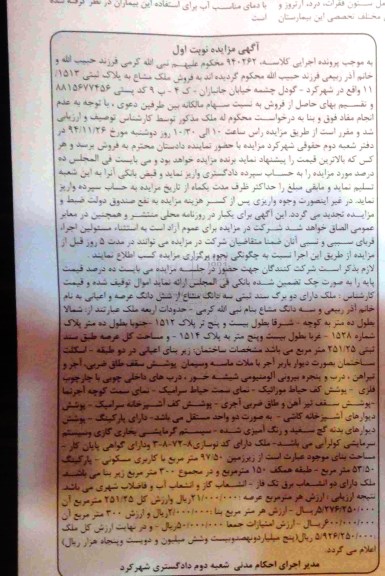 با دمای مناسب آب برای استفاده این بیماران در نظر گرفته شده
مختلف تخصصی این بیمارستان
آگهی مزایده نوبت اول
به موجب پرونده اجرایی کلاسه، ۹۴۰۲۶۲ محکوم علیهم نبی الله کرمی فرزند حبیب الله و
خانم آذر ربیعی فرزند حبیب الله محکوم گردیده اند به فروش ملک مشاع به پلاک ثبتی ۱۵۱۳/
۱۱ واقع در شهرکرد - گودل چشمه خیابان جانبازان - ک ۴ - پ ۹ کد پستی ۸۸۱۵۶۷۷۴۵۶
و تقسیم بهای حاصل از فروش به نسبت سهام مالکانه بین طرفین دعوی ، با توجه به عدم
انجام مفاد فوق و بنا به درخواست محکوم له ملک مذکور توسط کارشناس توصیف و ارزیابی
شد و مقرر است از طریق مزایده راس ساعت ۱۰ الی ۱۰/۳۰ روز دوشنبه مورخ ۹۴/۱۱/۲۶ در
دفتر شعبه دوم حقوقی شهرکرد مزایده با حضور نماینده دادستان محترم به فروش برسد و هر
کس که بالاترین قیمت را پیشنهاد نماید برنده مزایده خواهد بود و می بایست فی المجلس ده
درصد مورد مزایده را به حساب سپرده دادگستری واریز نماید و فیض بانکی آنرا به این شعبه
تسلیم نماید و مابقی مبلغ را حداکثر ظرف مدت یکماه از تاریخ مزایده به حساب سپرده واریز
نماید. در غیر اینصورت وجوه واریزی پس از کسر هزینه مزایده به نفع صندوق دولت ضبط و
مزایده تجدید می گردد. این آگهی برای یکبار در روزنامه محلی منتشر و همچنین در معابر
عمومی الصاق خواهد شد شرکت در مزایده برای عموم آزاد است به استثناء مسئولین اجرا،
قربای سببی و نسبی آنان ضمنا متقاضیان شرکت در مزایده می توانند در مدت ۵ روز قبل از
مزایده از طریق این اجرا نسبت به چگونگی نحوه برگزاری مزایده کسب اطلاع نمایند.
لازم بذکر است شرکت کنندگان جهت حضور در جلسه مزایده می بایست ده درصد قیمت
پایه را به صورت چک تضمین شده بانکی فی المجلس ارائه نماید اموال توقیف شده و قیمت
کارشناس : ملک دارای دو برگ سند ثبتی سه دانگ مشاع از شش دانگ عرصه و اعیانی به نام
خانم آذر ربیعی و سه دانگ مشاع بنام نبی الله کرمی - حدودات اربعه ملک عبارتند از: شمالا
بطول ده متر به کوچه - شرقا بطول بیست و پنج تر پلاک ۱۵۱۲ -جنوبا بطول ده متر پلاک
شماره ۱۵۲۸ - غربا بطول بیست وپنج متر به پلاک ۱۵۱۴ - و مساحت کل عرصه طبق سند
ثبتی ۲۵۱/۲۵ متر مربع می باشد مشخصات ساختمان: زیر بنای اعیانی در دو طبقه - اسکلت
ساختمان بصورت دیوار باربر آجر با ملات ماسه وسیمان پوشش سقف طاق ضربی، آجر و
تیرآهن ، درب و پنجره بیرونی آلومینیومی شیشه خور - درب های داخلی چوبی با چارچوب
فلزی - پوشش کف حیاط موزائیک - نمای سمت حیاط سرامیک - نمای سمت کوچه آجرنما
-پوشش سقف تیر آهن و طاق ضربی آجری - پوشش کف آشپزخانه سرامیک - پوشش
دیوارهای آشپزخانه کاشی - به صورت دو واحد مستقل می باشد- دارای پارکینگ - پوشش
دیوارهای بدنه گچ سفید و رنگ آمیزی شده - سیستم گرمایشی بخاری گازی وسیستم
سرمایشی کولرآبی می باشند- ملک دارای کد نوسازی ودارای گواهی پایان کار -
مساحت بنای موجود عبارت است از زیرزمین ۹۷/۵۰ متر مربع با کاربری مسکونی - پارکینگ
۵۳/۵۰ متر مربع - طبقه همکف ۱۵۰ مترمربع و در مجموع ۳۰۰ متر مربع زیر بنا می باشد.
ملک دارای دو انشعاب برق تک فاز - انشعاب گاز و انشعاب آب و فاضلاب شهری می باشد.
نتیجه ارزیابی : ارزش هر مترمربع عرصه ۲۱/۰۰۰/۰۰۰ریال وارزش کل ۲۵۱/۲۵ مترمربع آن
۵/۲۷۶/۲۵۰/۰۰۰ریال- ارزش هر متر مربع بنا ۲/۰۰۰/۰۰۰ریال و ارزش ۳۰۰ متر مربع آن
۶۰۰/۰۰۰/۰۰۰ریال - ارزش امتیازات جمعا ۵۰/۰۰۰/۰۰۰ریال - و در نهایت ارزش کل ملک
۵/۹۲۶/۲۵۰/۰۰۰ ریال(پنج میلیاردونهصدوبیست وشش میلیون و دویست وپنجاه هزار ریال)
اعلام می گردد.
مدیر اجرای احکام مدنی شعبه دوم دادگستری شهرکرد